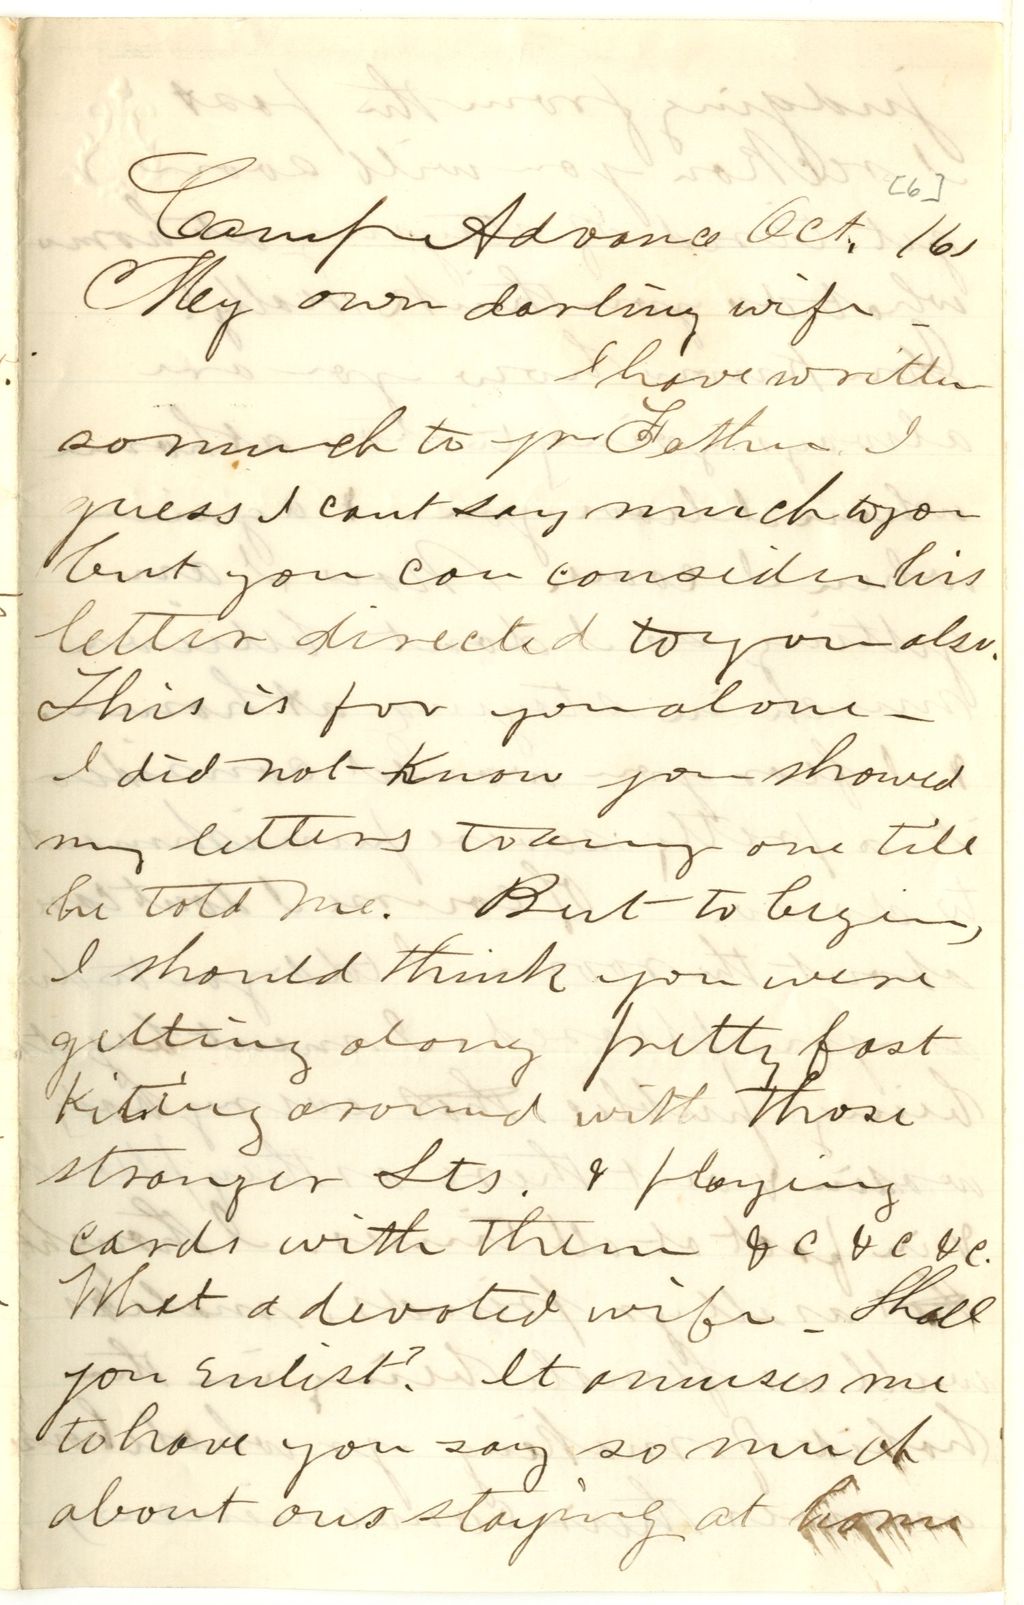 [6]
Camp Advance Oct. 16
My own darling wife -
I have written
so much to yr Father I
guess I cant say much to you
but you can consider his
letter directed to you also.
This is for you alone -
I did not know you showed
my letters to any one till
he told me. But to begin,
I should think you were
getting along pretty fast
Kiting around with those
stranger Lts. & playing
cards with them &c &c &c.
What a devoted wife - Shall
you enlist? It amuses me
to have you say so much
about ous staying at home